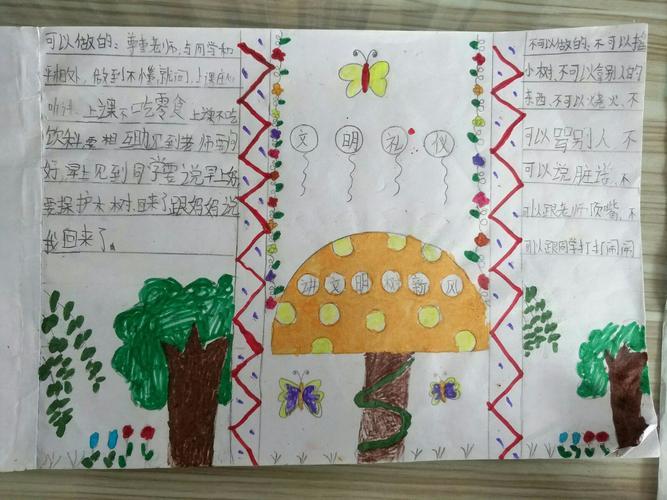 可以做的：尊重老师，与同学和
平相处，做到不懂就问，上课认心
听讲，上课不吃零食，上课不吃
饮料，要相互助，见到老师要问
好，早上见到同学要说早上好
要保护大树，回来了跟妈妈说
我回来了。
文明礼仪
讲文明树新风
不可以做的：不可以折
小树，不可以拿别人的
东西，不可以烧火，不
可以骂别人，不
可以说脏话，不
可以跟老师顶嘴，不
可以跟同学打打闹闹